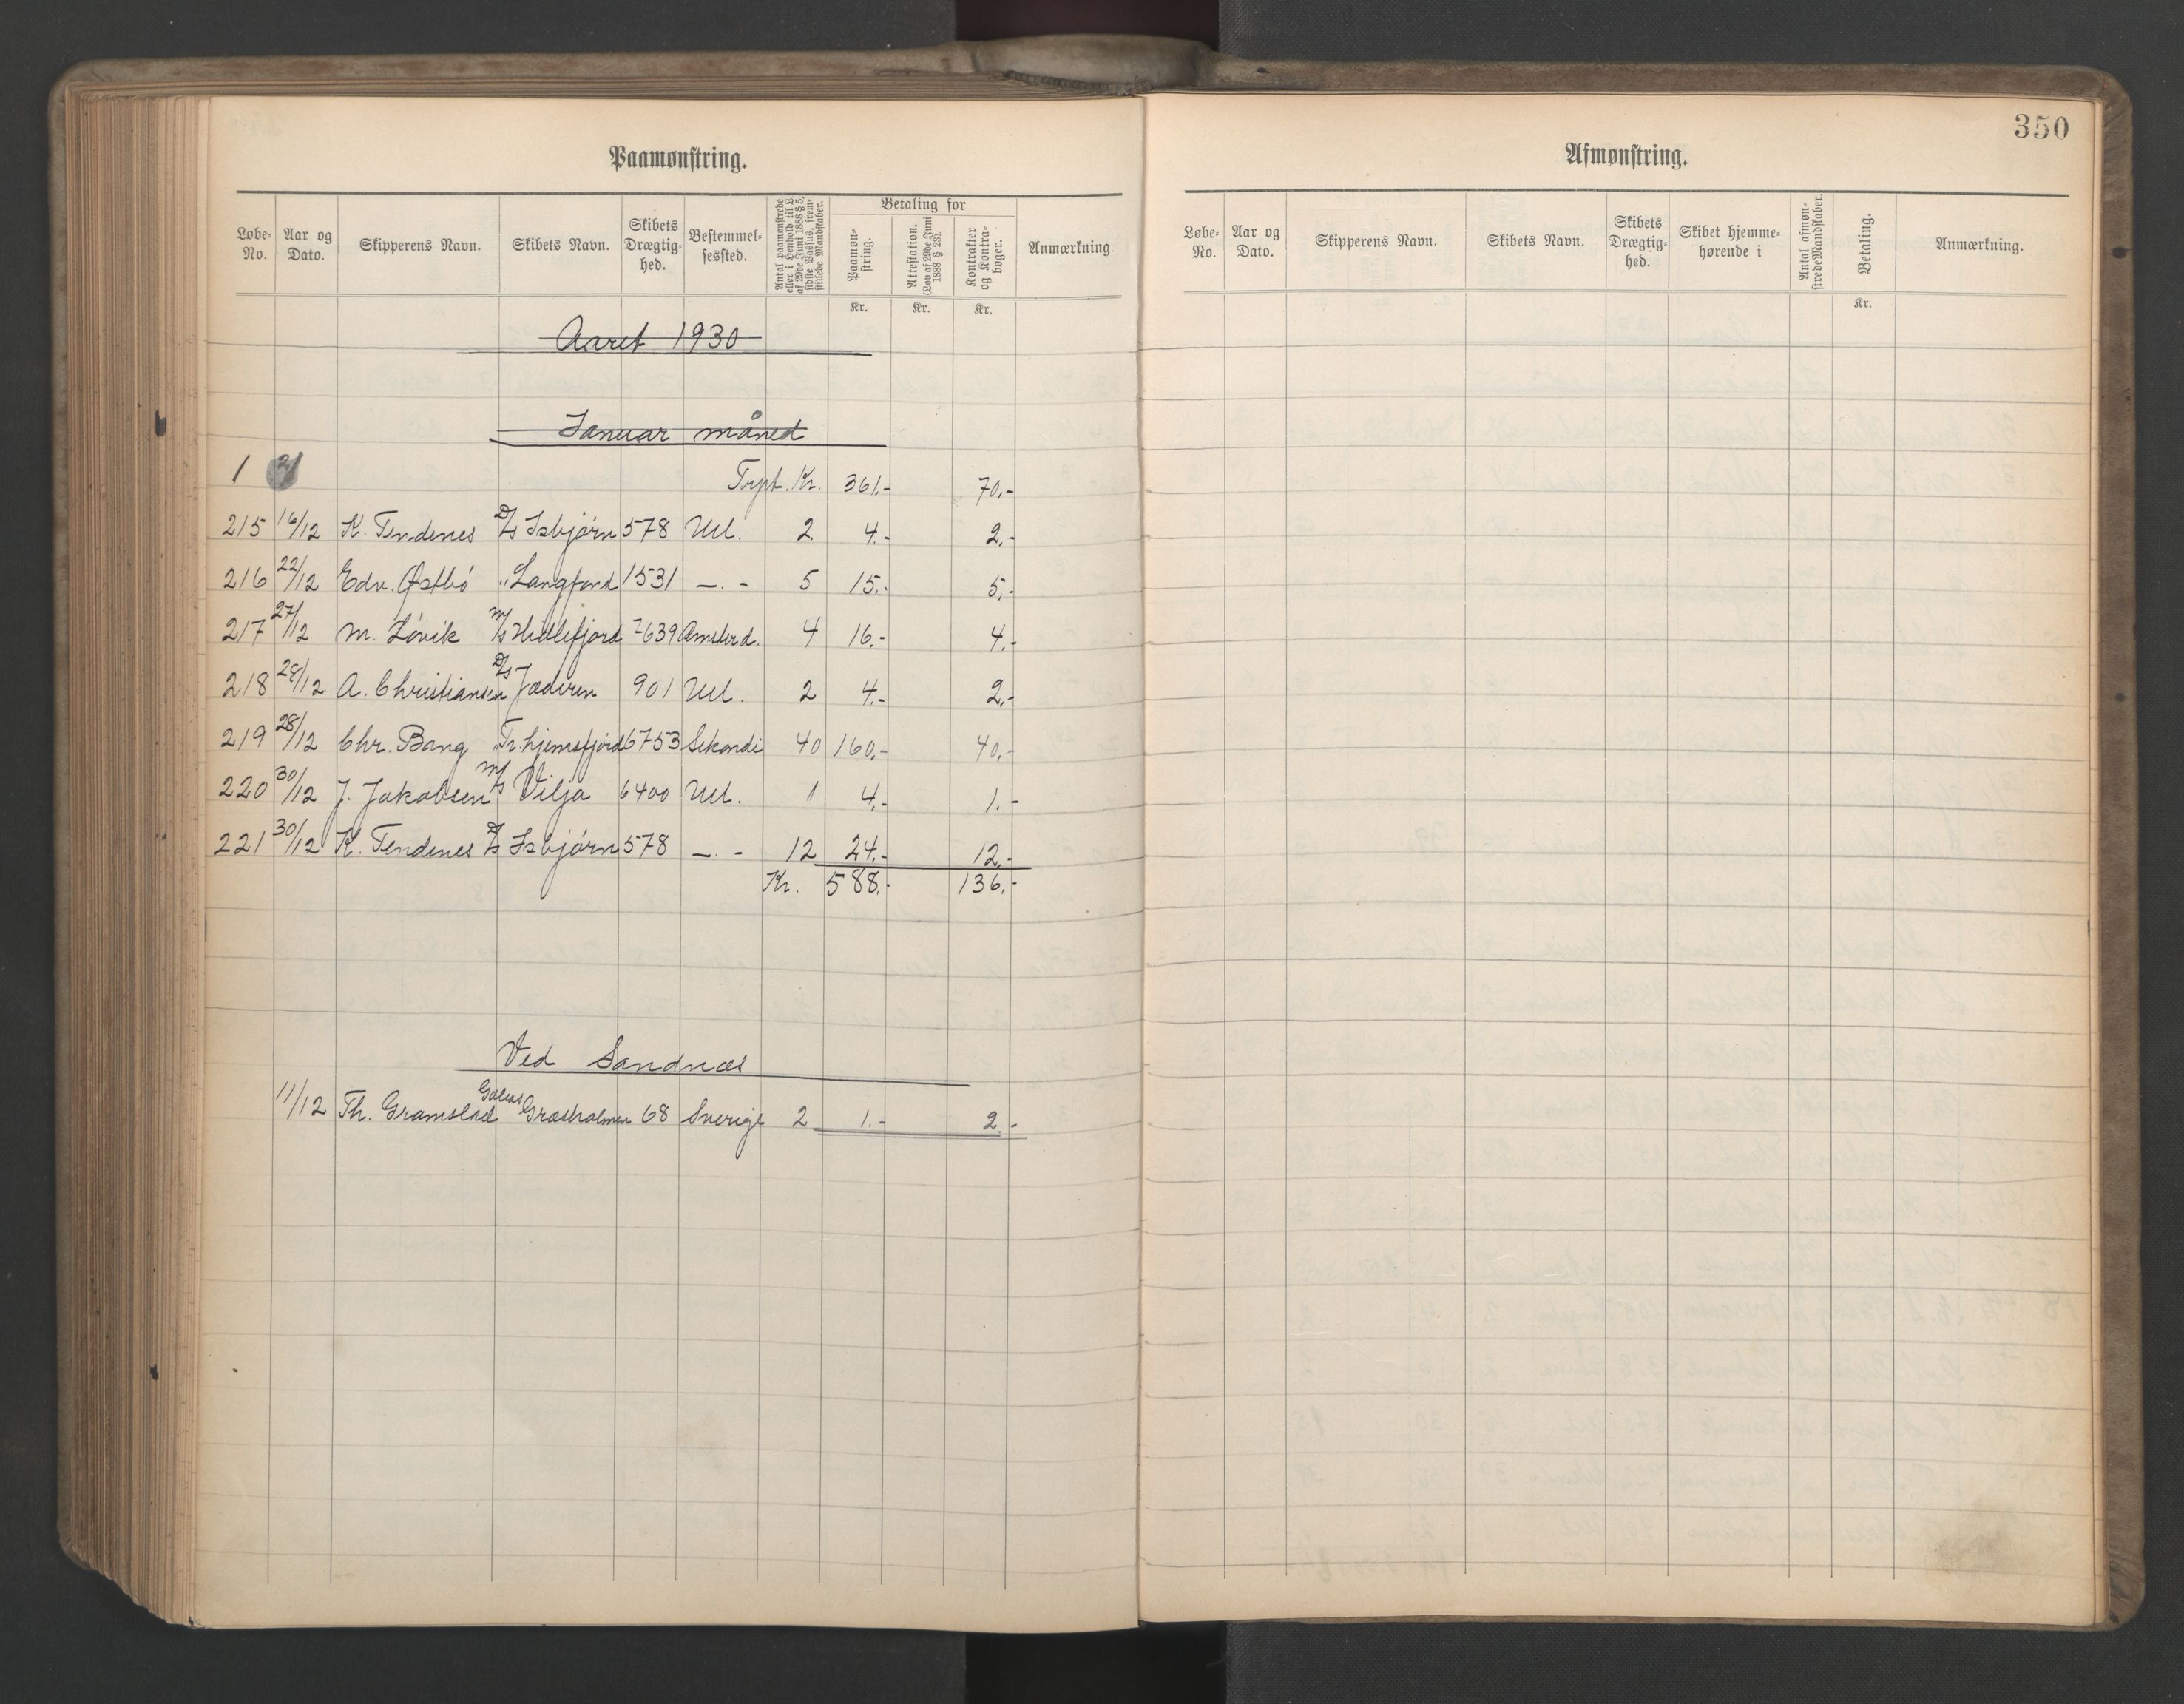 Paamønstring.
Løbe-No. Aar og Dato. Skipperens Navn. Skibets Navn. Skibets Drægtig-hed. Bestemmel-sessted. Antal paamønstrede eller i Henhold til L. af 29de Juni 1888 § 5, sidste Passus, frem-stillede Mandskaber. Betaling for Paamøn-string. Attestation. (Lov af 29de Juni 1888 § 23). Kontrakter og Kontra-bøger. Anmærkning.
Kr. Kr. Kr.
Aaret 1930
Januar måned
1
Trpt. Kr. 361.- 70.-
215 16/12 K. Tendenes D/S Isbjørn 578 Utl. 2 4.- 2.-
216 22/12 Edv. Østbø " Langfond 1531 -.- 5 15.- 5.-
217 27/12 M. Løvik M/S Hidlefjord 7639 Amsterd. 4 16.- 4.-
218 28/12 A. Christiansen D/S Jæderen 901 Utl. 2 4.- 2.-
219 28/12 Chr. Bang " Tr.hjemsfjord 6753 Sekondi 40 160.- 40.-
220 30/12 J. Jakobsen M/S Vilja 6400 Utl. 1 4.- 1.-
221 30/12 K. Tendenes D/S Isbjørn 578 -.- 12 24.- 12.-
Kr. 588.- 136.-
Ved Sandnæs
11/12 Th. Gramstad Galeas Græsholmen 68 Sverige 2 1.- 2.-
350
Afmønstring.
Løbe-No. Aar og Dato. Skipperens Navn. Skibets Navn. Skibets Drægtig-hed. Skibet hjemme-hørende i Antal afmøn-strede Mandskaber. Betaling. Anmærkning.
Kr.